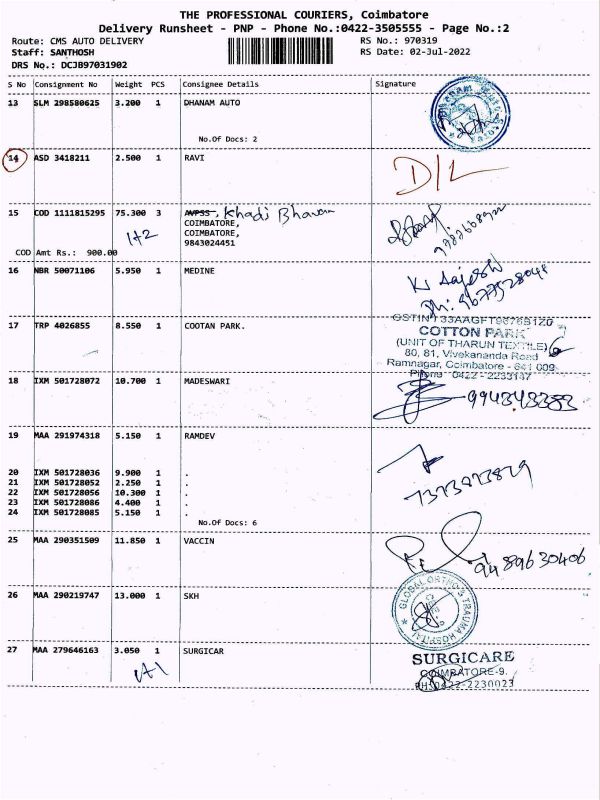 THE PROFESSIONAL COURIERS, Coimbatore
Delivery Runsheet - PNP - Phone No.:0422-3505555 - Page No.:2
Route: CMS AUTO DELIVERY RS No.: 970319
Staff: SANTHOSH RS Date: 02-Jul-2022
DRS No.: DCJB97031902
S No Consignment No Weight PCS Consignee Details Signature
13 SLM 298580625 3.200 1 DHANAM AUTO
No.Of Docs: 2
14 ASD 3418211 2.500 1 RAVI D/L
15 COD 1111815295 75.300 3 AVPSS, Khadi Bhavan
COIMBATORE,
COIMBATORE,
9843024451
H2
COD Amt Rs.: 900.00
16 NBR 50071106 5.950 1 MEDINE
Ph: 9677528048
17 TRP 4026855 8.550 1 COOTAN PARK.
COTTON PARK
(UNIT OF THARUN TEXTILE)
80, 81, Vivekananda Road
Ramnagar, Coimbatore - 641 009
Phone 0422 - 2233147
18 IXM 501728072 10.700 1 MADESWARI
19 MAA 291974318 5.150 1 RAMDEV
20 IXM 501728036 9.900 1 .
21 IXM 501728052 2.250 1 .
22 IXM 501728056 10.300 1 .
23 IXM 501728086 4.400 1 .
24 IXM 501728085 5.150 1 .
No.Of Docs: 6
7373273829
25 MAA 290351509 11.850 1 VACCIN
9489630406
26 MAA 290219747 13.000 1 SKH
GLOBAL ORTHO & TRAUMA HOSPITAL
27 MAA 279646163 3.050 1 SURGICAR
SURGICARE
COIMBATORE-9.
PH:0422-2230023